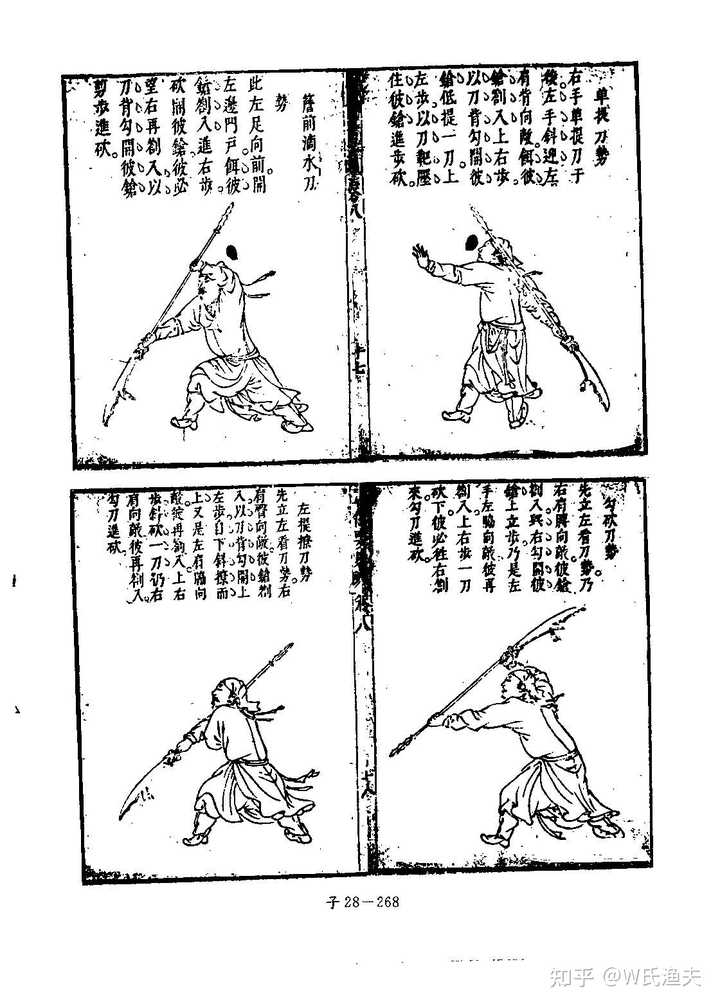 单提刀勢
右手单提刀于
後左手斜迎左
有背向敵餌彼
鎗劄入上右步
以刀背勾開彼
鎗低提一刀上
左步以刀靶壓
住彼鎗進步砍。
卷八
十七
簷前滴水刀
勢
此左足向前開
左邊門戸餌彼
鎗劄入進右步
砍開彼鎗彼必
望右再劄入以
刀背勾開彼鎗
剪步進砍。
勾砍刀勢
先立左看刀勢。乃
右有膊向敵彼鎗
劄入與右勾開彼
鎗上立步乃是左
手左脇向敵彼再
劄入上右步一刀
砍下彼必往右劄
來勾刀進砍。
卷八
十八
左提撩刀勢
先立左看刀勢。右
有臂向敵彼鎗劄
入以刀背勾開上
左步自下斜撩而
上又是左有膊向
敵彼再劄入上右
步斜砍一刀仍右
有向敵彼再劄入。
勾刀進砍。
子 28－268
知乎 @W氏渔夫